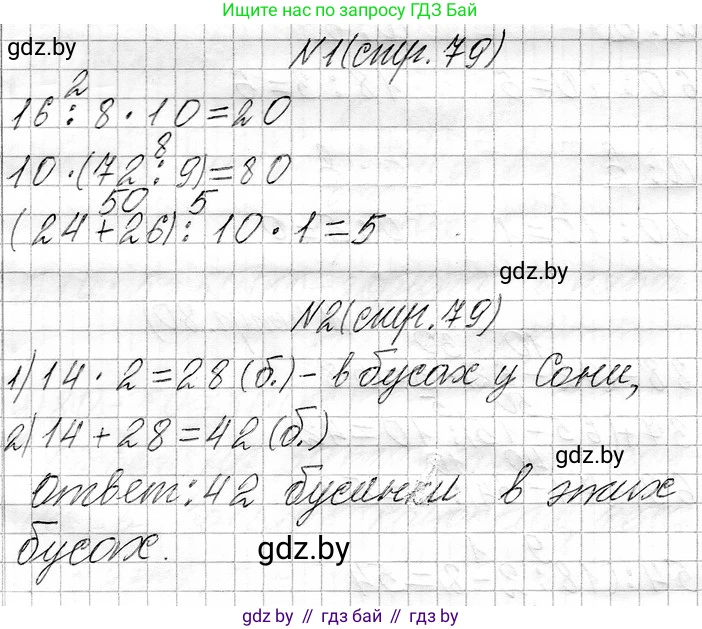 Ищите нас по запросу ГДЗ Бай
gdz.by
N1(стр. 79)
2
16 : 8 · 10 = 20
8
10 · (72 : 9) = 80
50 5
(24 + 26) : 10 · 1 = 5
gdz.by
N2(стр. 79)
1) 14 · 2 = 28 (б.) - в бусах у Сони,
2) 14 + 28 = 42 (б.)
gdz.by
Ответ: 42 бусинки в этих
бусах.
gdz.by
gdz by // гдз бай // gdz by